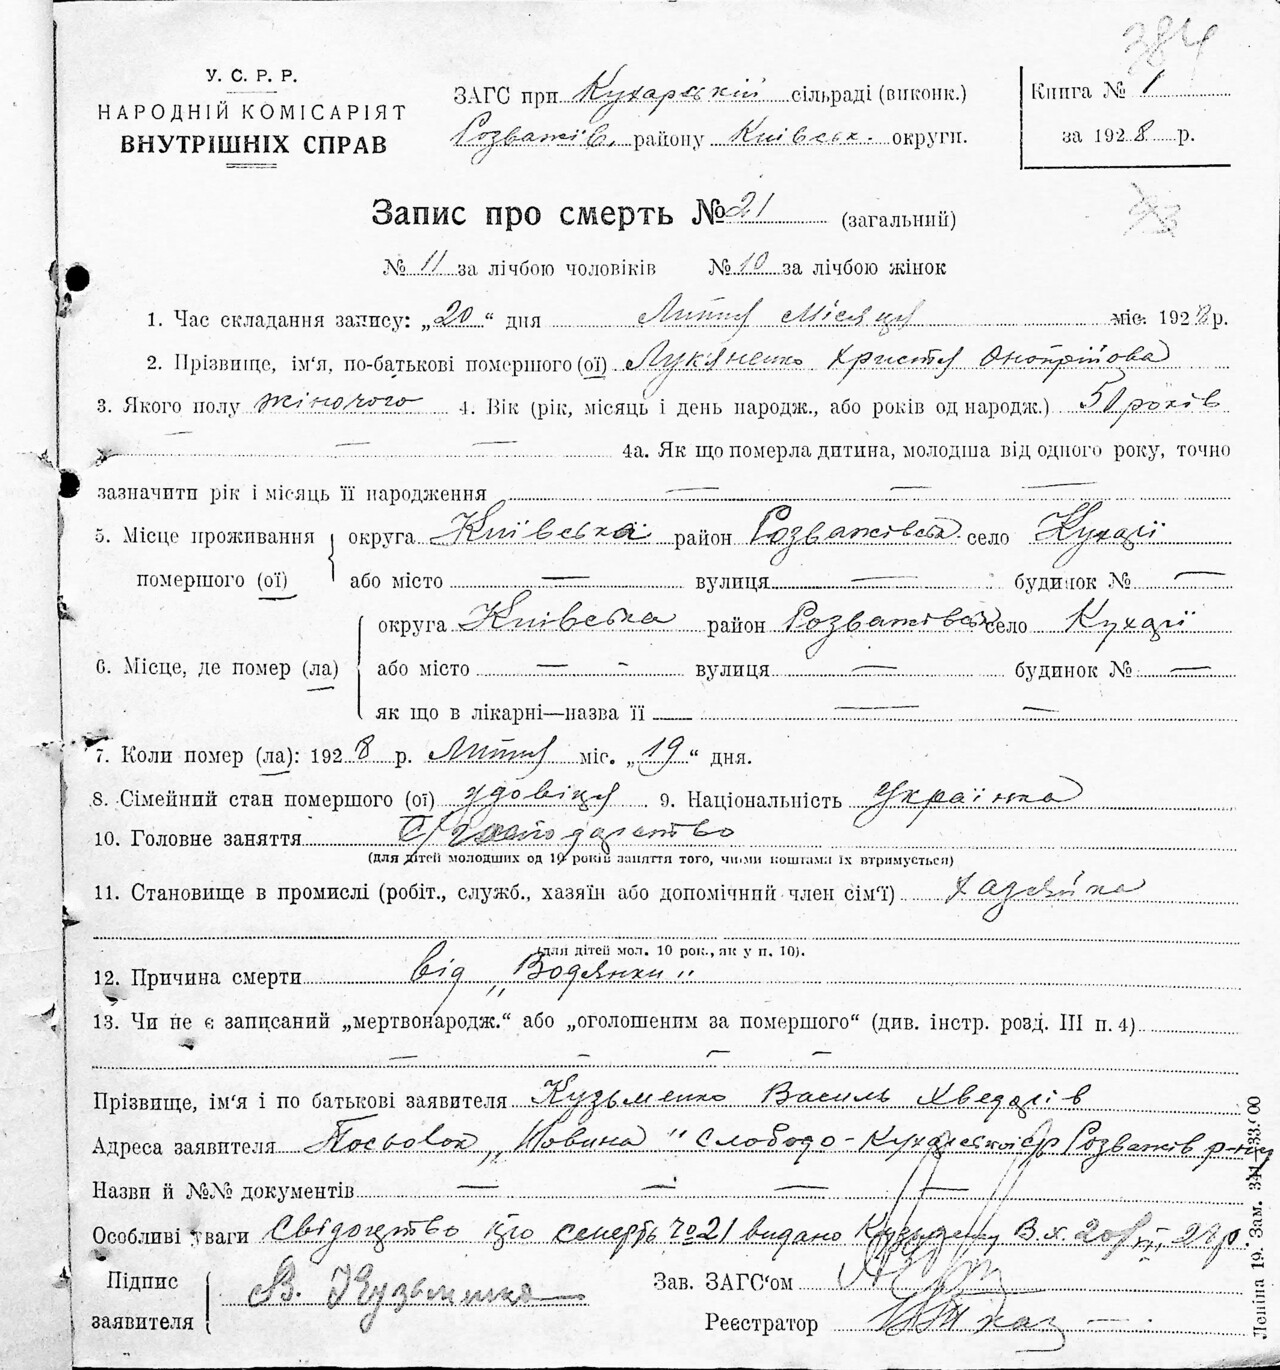 384
У. С. Р. Р.
НАРОДНІЙ КОМІСАРІЯТ
ВНУТРІШНІХ СПРАВ
ЗАГС при Кухарській сільраді (виконк.)
Розважів. району Київськ. округи.
Книга № 1
за 1928 р.
Запис про смерть № 21 (загальний)
№ 11 за лічбою чоловіків № 10 за лічбою жінок
1. Час складання запису: „20“ дня Липня Місяця міс. 1928 р.
2. Прізвище, ім'я, по-батькові помершого (ої) Лук'яненко Христя Онопрійова
3. Якого полу жіночого 4. Вік (рік, місяць і день народж., або років од народж.) 50 років
— — — 4а. Як що померла дитина, молодша від одного року, точно
зазначити рік і місяць її народження — — —
5. Місце проживання помершого (ої) округа Київська район Розважівськ. село Кухарі
або місто — вулиця — будинок № —
6. Місце, де помер (ла) округа Київська район Розважівськ село Кухарі
або місто — - вулиця — будинок № —
як що в лікарні—назва її — — —
7. Коли помер (ла): 1928 р. Липня міс. „19“ дня.
8. Сімейний стан помершого (ої) удовіця 9. Національність Українка
10. Головне заняття С/господарство
(для дітей молодших од 10 років заняття того, чиїми коштами їх втримується)
11. Становище в промислі (робіт., служб., хазяїн або допомічний член сім'ї) хазяйка
(для дітей мол. 10 рок., як у п. 10).
12. Причина смерти від „Водянки"
13. Чи не є записаний „мертвонародж.“ або „оголошеним за помершого“ (див. інстр. розд. III п. 4)
— — — —
Прізвище, ім'я і по батькові заявителя Кузьменко Василь Хведорів
Адреса заявителя Посьолок „Новина" Слободо-Кухарської с/р Розважів р-ну
Назви й №№ документів — — — —
Особливі уваги Свідоцтво про смерть №21 видано Кузьменку В.Х. 20/VII 28р.
Підпис заявителя В. Кузьменко
Зав. ЗАГС'ом
Реєстратор
Леніна 19. Зам. 341—33.00